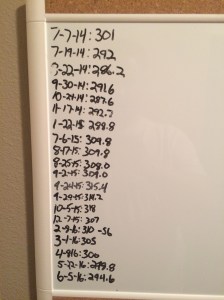 7-7-14: 301
7-19-14: 292
9-22-14: 286.2
9-30-14: 291.6
10-24-14: 287.6
11-17-14: 292.7
1-22-15: 288.8
7-6-15: 309.8
8-17-15: 309.8
8-25-15: 308.0
9-2-15: 309.0
9-24-15: 315.4
10-5-15: 318
12-7-15: 307
2-9-16: 310 -56
3-1-16: 305
4-8-16: 300
5-12-16: 298.8
6-5-16: 294.6